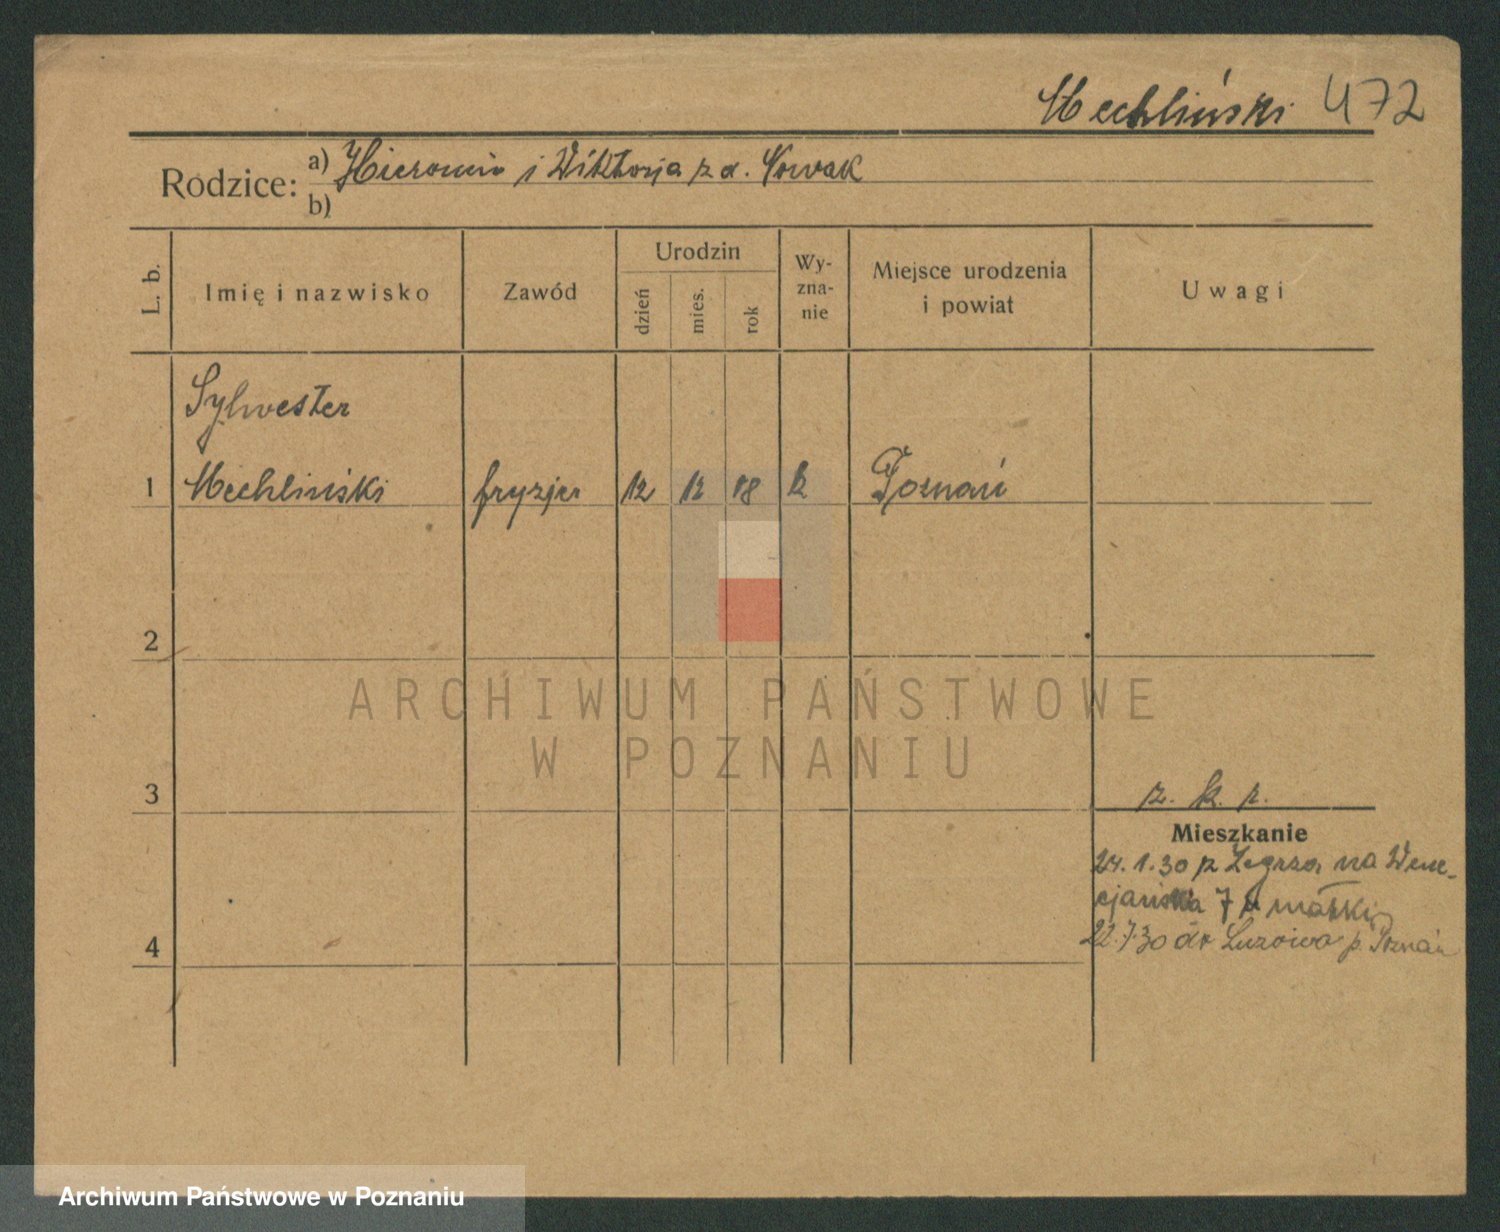 Mechliński 472
Rodzice: a) Hieronim i Wiktorja z d. Nowak
b)
L. b.
Imię i nazwisko
Zawód
Urodzin
dzień
mies.
rok
Wy-
zna-
nie
Miejsce urodzenia
i powiat
Uwagi
Sylwester
1 Mechliński fryzjer 12 12 18 k Poznań
2
ARCHIWUM PAŃSTWOWE
W POZNANIU
3
z. k. p.
Mieszkanie
24.1.30 z Zegrza na Wene-
cjańska 7 u matki
4
22.7.30 do p. Poznań
Archiwum Państwowe w Poznaniu